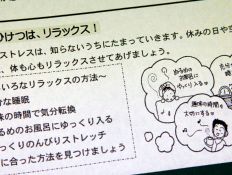 ひけつは、リラックス！
ストレスは、知らないうちにたまっていきます。休みの日や
、体も心もリラックスさせてあげましょう。
いろなリラックスの方法〜
な睡眠
味の時間で気分転換
るめのお風呂にゆっくり入る
っくりのんびりストレッチ
に合った方法を見つけましょう
お風呂に
ゆっくり入る
趣味の時間を
大切にする